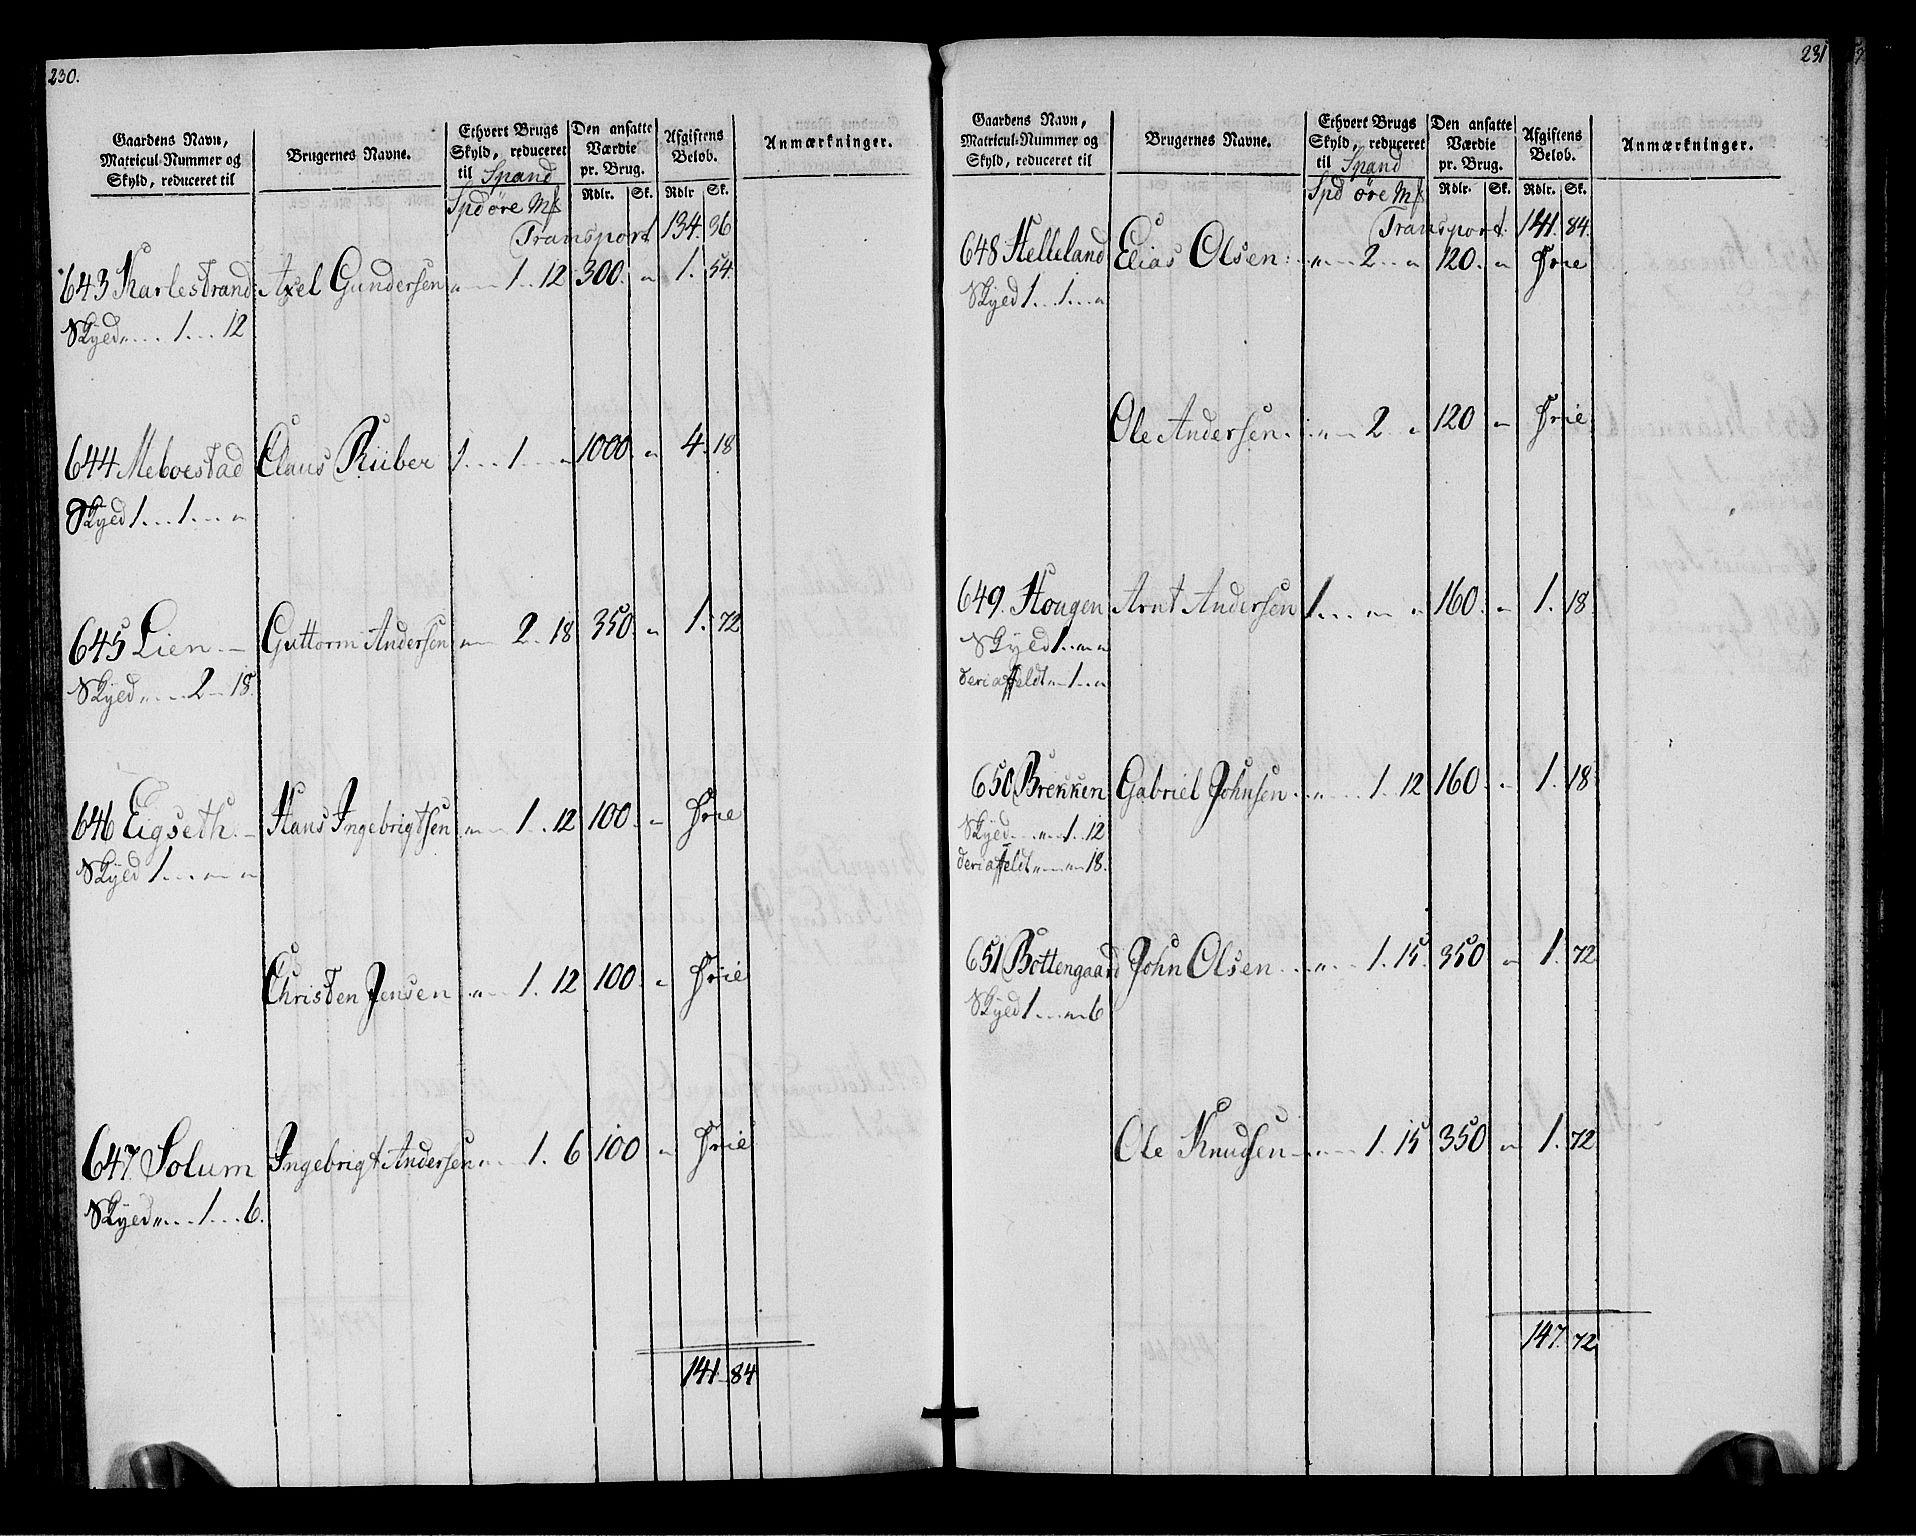 230.
Gaardens Navn, Matricul-Nummer og Skyld, reduceret til
Brugernes Navne.
Ethvert Brugs Skyld, reduceret til Spand
Den ansatte Værdie pr. Brug.
Afgiftens Beløb.
Anmærkninger.
Spd øre Mk Rdlr. Sk. Rdlr Sk.
Transport 134. 36
643 Karlestrand Axel Gundersen „ 1. 12 300. „ 1. 54.
Skyed „ 1 12
644 Meboestad Claus Riiber 1 1 „ 1000. „ 4. 18
Skyed 1 1 „
645 Lien Guttorm Andersen „ 2. 18 350. „ 1. 72
Skyed „ 2 18.
646 Eigseth. Hans Ingebrigtsen „ 1. 12 100. „ Frie
Skyed 1 „ „
Christen Jensen „ 1. 12 100. „ Frie
647. Solum Ingebrigt Andersen „ 1. 6 100 „ Frie
Skyed „ 1 6.
141. 84
231
Gaardens Navn, Matricul-Nummer og Skyld, reduceret til
Brugernes Navne.
Ethvert Brugs Skyld, reduceret til Spand
Den ansatte Værdie pr. Brug.
Afgiftens Beløb.
Anmærkninger.
Spd øre Mk Rdlr. Sk. Rdlr. Sk.
Transport. 141. 84.
648 Helleland Elias Olsen „ 2 „ 120. „ Frie
Skyed 1 1 „
Ole Andersen „ 2. „ 120 „ Frie
649. Hougen Arnt Andersen 1 „ „ 160. „ 1. 18
Skyld 1 „ „
deriaffeldt „ 1 „
650 Brekken Gabriel Johnsen „ 1. 12 160. „ 1. 18
Skyed „ 1 12
deriaffeldt „ „ 18.
651 Bottengaard John Olsen „ 1. 15 350 „ 1. 72
Skyed 1 „ 6
Ole Knudsen „ 1. 15 350 „ 1. 72
147. 72